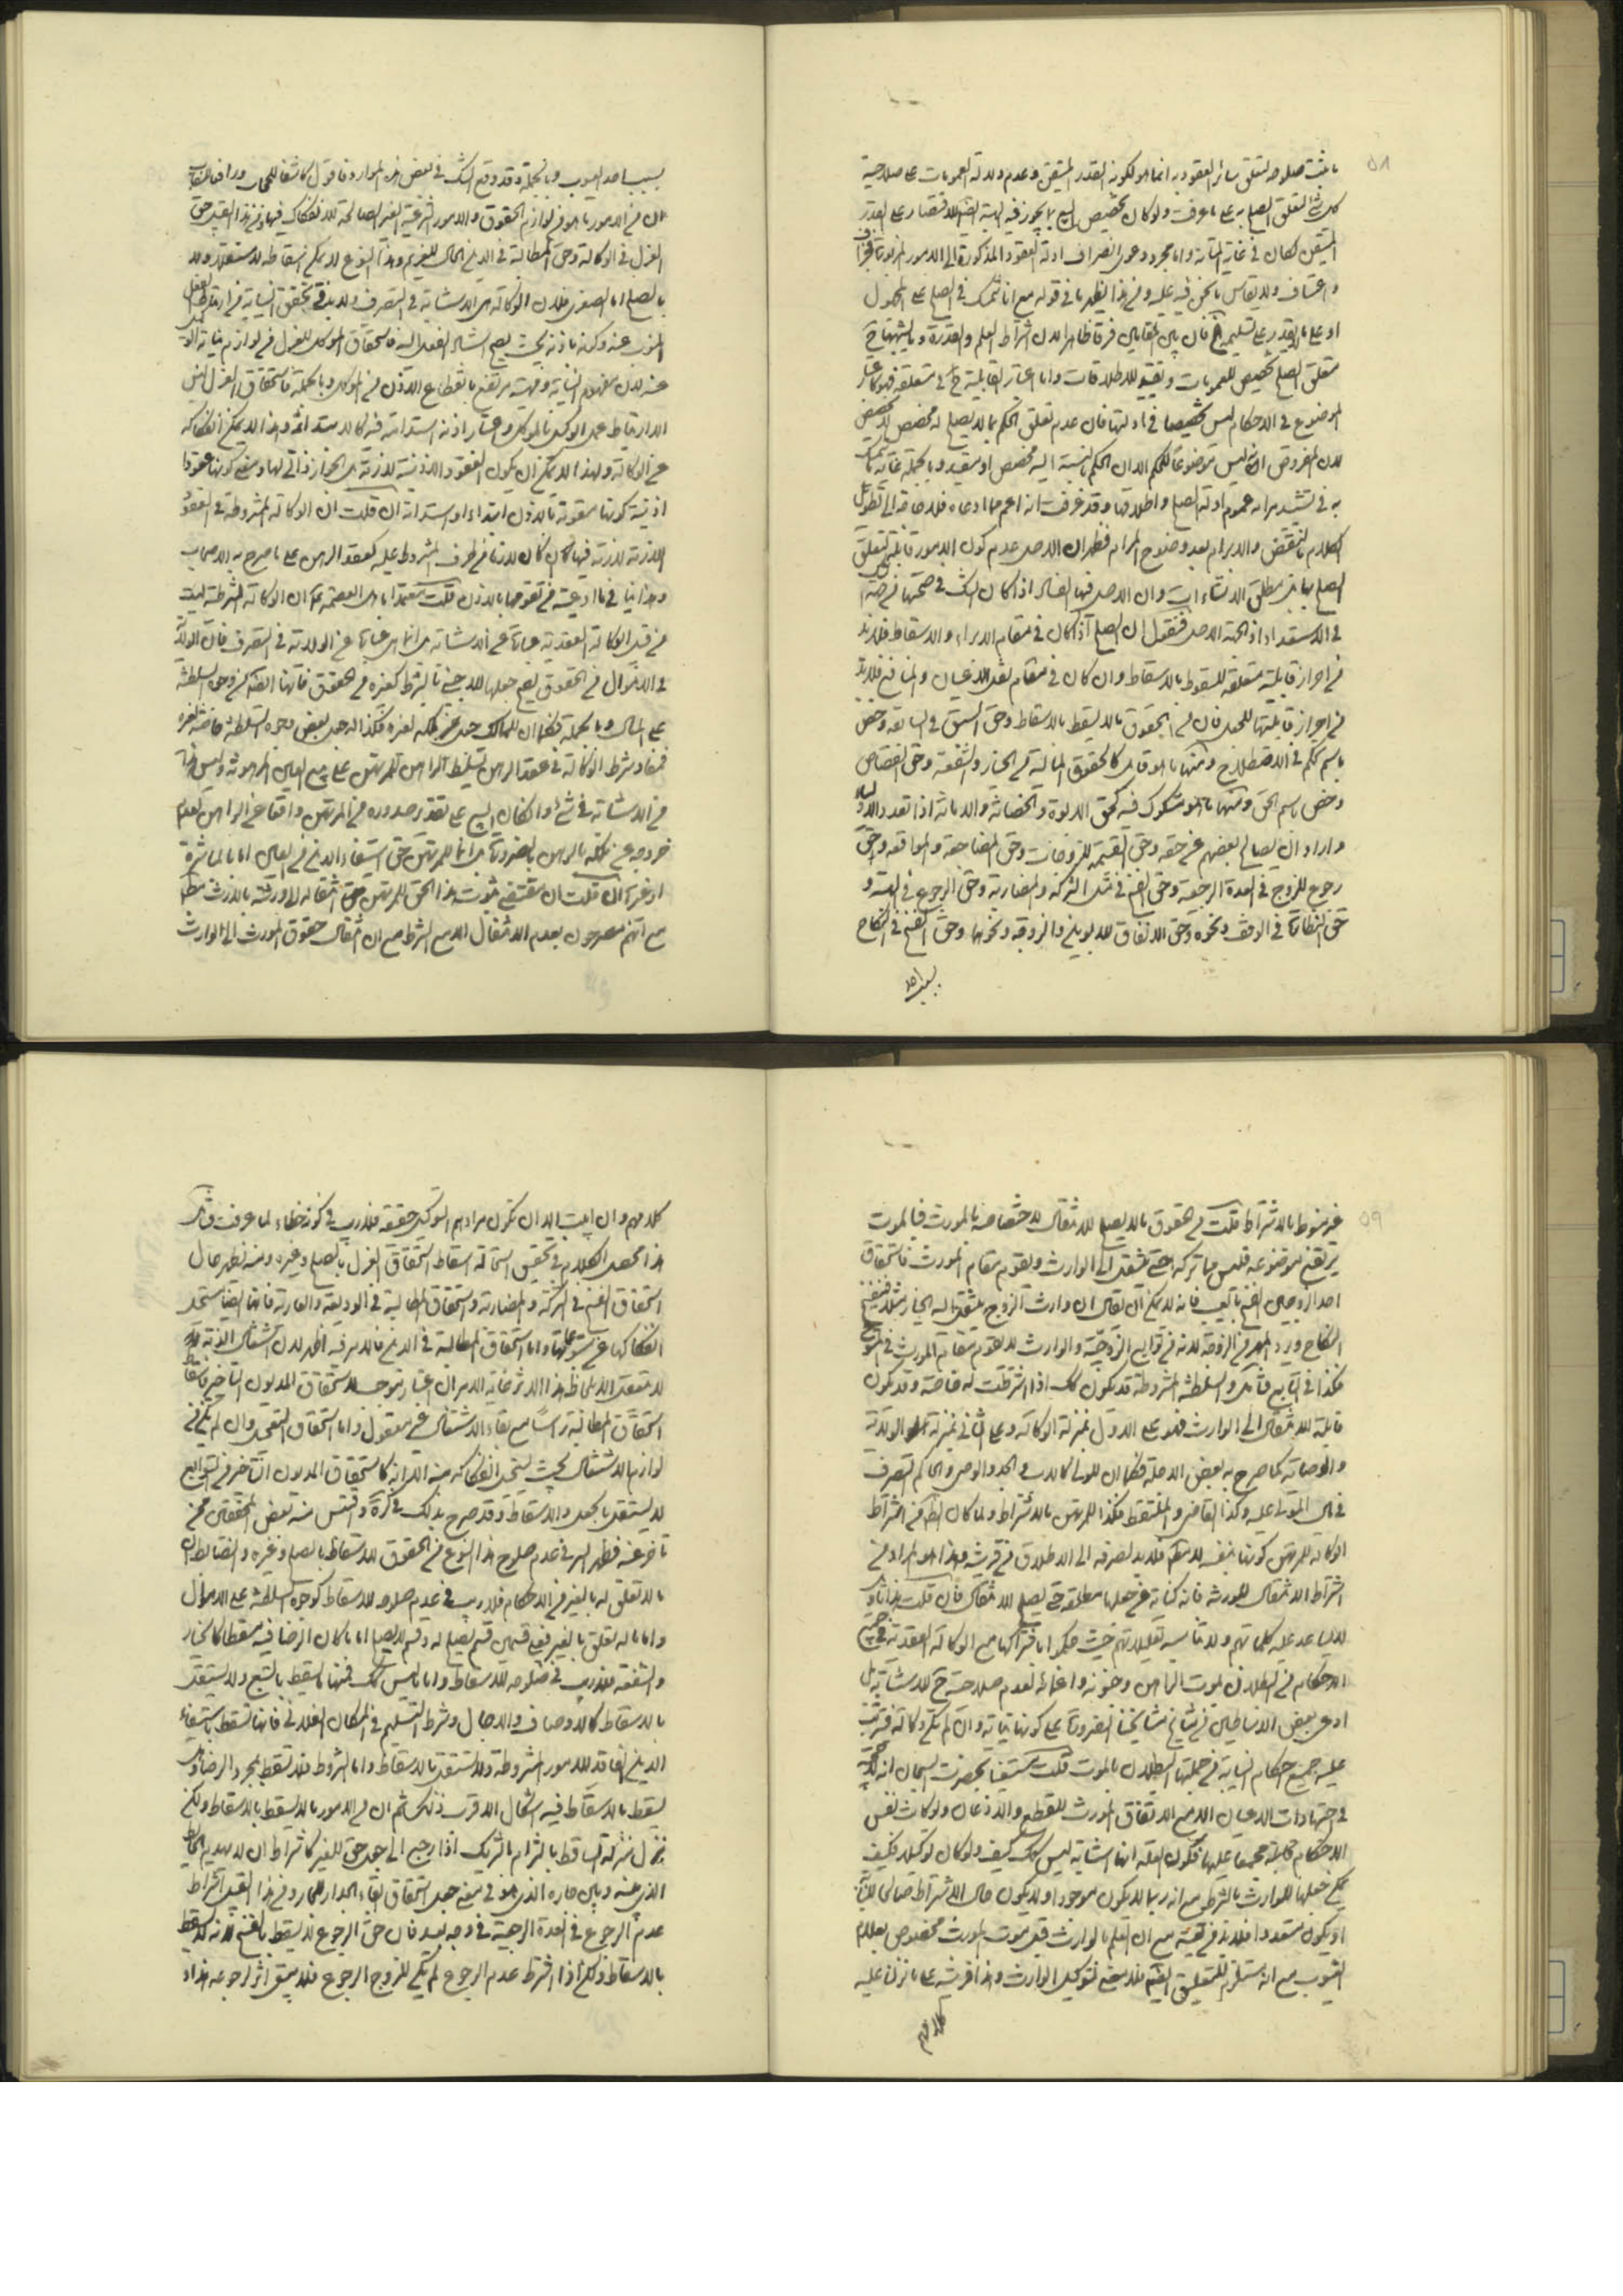 ۵۸
ما ثبت صلوحه لتعلق سائر العقود به انما هو لكونه القدر المتيقن وعدم دلالة العمومات على صلاحية
كل شئ لتعلق الصلح به على ما عرفت ولو كان تخصيص البيع بما يجوز فيه الهبة ايضا للاقتصار على القدر
المتيقن لكان في غاية المتانة واما مجرد دعوى انصراف ادلة العقود المذكورة الى الامور المزبورة فجزاف
واعتساف ولا يقاس ما نحن فيه عليه ومن هذا يظهر ما في قوله مع انا نتمسك في الصلح على المجهول
او على ما لا يقدر على تسليمه فان بين المقامين فرقا ظاهرا لان اشتراط العلم والقدرة وما يشبههما في
متعلق الصلح تخصيص للعمومات وتقييد للاطلاقات واما اعتبار القابلية في متعلقه فهو كاعتبار
الموضوع في الاحكام ليس تخصيصا في ادلتها فان عدم تعلق الحكم بما لا يصلح له تخصص لا تخصيص
لان المفروض انه ليس موضوعا للحكم لا ان الحكم بالنسبة اليه مخصص او مقيد وبالجملة غاية ما تمسك
به في تشييد مرامه عموم ادلة الصلح واطلاقها وقد عرفت انه اعم مما ادعاه فلا حاجة الى تطويل
الكلام بالنقض والابرام بعد وضوح المرام فظهر ان الاصل عدم كون الامور قابلة لتعلق
الصلح بها بل مطلق الانشاءات وان الاصل فيها الفساد اذا كان الشك في صحتها من جهة
في الاستعداد اذا اتجه الاصل فنقول ان الصلح اذا كان في مقام الابراء والاسقاط فلابد
من احراز قابلية متعلقه للسقوط بالاسقاط وان كان في مقام نقل الاعيان والمنافع فلابد
من احراز قابليتها للنقل فان من الحقوق ما لا يسقط بالاسقاط وحق السبق في السابقة وخص
باسم الحكم في الاصطلاح ومنها ما هو قابل كالحقوق المالية من الخيار والشفعة وحق القصاص
وخص باسم الحق ومنها ما هو مشكوك فيه كحق الابوة والحضانة والامانة اذا تعدد الاولياء
واراد ان يصالح بعضهم عن حقه وحق القسمة للزوجات وحق المضاجعة والمواقعة وحق
رجوع الزوج في العدة الرجعية وحق الفسخ في مثل الشركة والمضاربة وحق الرجوع في الهبة و
حق النظارة في الوقف ونحوه وحق الانفاق للابوين والزوجة ونحوها وحق الفسخ في النكاح
بسبب احد
بسبب احد العيوب وبالجملة وقد وقع الشك في بعض هذه الموارد فاقول كاشفا للحجاب ورافعا للنقاب
ان من الامور ما هو من لوازم الحقوق والامور الشرعية الغير الصالحة للانفكاك فيها ومن هذا القبيل حق
العزل في الوكالة وحق المطالبة في الدين الحال للغريم وهذا النوع لا يمكن اسقاطه لا مستقلا ولا
بالصلح اما الصغرى فلان الوكالة هي الاستنابة في التصرف ولابد في تحقق النيابة من ارتباط الفعل
المنوب عنه وكونه باذنه بحيث يصح اسناد الفعل اليه فاستحقاق الموكل للعزل من لوازم نيابة الوكيل
عنه لان مفهوم النيابة وماهيته مرتفع بانقطاع الاذن من الموكل وبالجملة فاستحقاق العزل ليس
الا ارتباط عمل الوكيل بالموكل واعتبار اذنه استدامة فيه كالابتداء وهذا لا يمكن انفكاكه
عن الوكالة ولهذا لا يمكن ان يكون العقود الاذنية لازمة بل الجواز ذاتي لها ومعنى كونها عقودا
اذنية كونها متقومة بالاذن ابتداء او استدامة ان قلت ان الوكالة المشروطة في العقود
اللازمة لازمة فيها كان لازما من طرف المشروط عليه كعقد الرهن على ما صرح به الاصحاب
وهذا ينافي ما ادعيت من تقومها بالاذن قلت مستعينا باهل العصمة ان الوكالة المشترطة ليست
من قبيل الوكالة العقدية عبارة عن الاستنابة بل انما هي عبارة عن الولاية في التصرف فان الولاية
في الاموال من الحقوق يصح جعلها للاجنبي بالشرط كغيره من الحقوق فانها ايضا من وجوه السلطنة
على المال وبالجملة فكما ان للمالك جعل نحو ملكه لغيره فكذا له جعل بعض وجوه السلطنة خاصة لغيره
فمفاد شرط الوكالة في عقد الرهن تسليط الراهن للمرتهن على بيع العين المرهونة وليس هذا
من الاستنابة في شئ واذا كان البيع على تقدير صدوره من المرتهن واقعا عن الراهن لعدم
خروجه عن ملكه بالرهن بالضرورة بل انما للمرتهن حق استيفاء الدين من العين اما بالمباشرة
او غيرها ان قلت ان مقتضى ثبوت هذا الحق للمرتهن هو انتقاله الى ورثته بالارث مطلقا
مع انهم مصرحون بعدم الانتقال الا مع الشرط مع ان انتقال حقوق المورث الى الوارث
۵۹
غير منوط بالاشتراط قلت من الحقوق ما لا يصلح للانتقال لاختصاصه بالمورث فبالموت
يرتفع موضوعه فليس مما تركه حتى ينتقل الى الوارث ويقوم مقام المورث فاستحقاق
احد الزوجين الفسخ بالعيب فانه لا يمكن ان يقال ان وارث الزوج ينتقل اليه الخيار مثلا فيفسخ
النكاح ويرد المهر من الزوجة لانه من توابع الزوجية والوارث لا يقوم مقام المورث في المتبوع
فكذا في التابع فتأمل والسلطنة المشروطة قد يكون كذلك اذا اشترطت له خاصة وقد يكون
قابلة للانتقال الى الوارث فهو على الاول بمنزلة الوكالة وعلى الثاني بمنزلة الولاية
والوصاية كما صرح به بعض الاجلة فكما ان للولي كالاب والجد والوصي والحاكم التصرف
في مال المولى عليه وكذا القاضي والملتقط فكذا للمرتهن بالاشتراط ولما كان الظاهر من اشتراط
الوكالة للمرتهن كونها بنفسه لا مطلقا فلابد لصرفه الى الاطلاق من قرينة وهذا هو المراد من
اشتراط الانتقال للورثة فانه كناية عن جعلها مطلقة حتى يصلح للانتقال فان قلت هذا
لا يساعد عليه كلماتهم ولا يناسبه تعليلاتهم حيث حكموا باشتراكها مع الوكالة العقدية في جميع
الاحكام من البطلان بموت الراهن وجنونه واغمائه لعدم صلاحيته ح للاستنابة بل
ادعى بعض الاساطين من مشايخ مشايخنا الضرورة على كونها نيابة وان لم يكن وكالة فيترتب
عليه جميع احكام النيابة من جملتها البطلان بالموت قلت مستعينا بحضرت السبحان انه لا حجة
في اجتهادات الاعيان الا مع الاتفاق المورث للقطع والاذعان ولو كانت نفس
الاحكام مجمعا عليها فكون العلة انها استنابة ليس كذلك كيف ولو كان توكيلا فكيف
يمكن جعلها للوارث بالشرط مع انه ربما لا يكون موجودا ولا يكون حال الاشتراط صالحا للنيابة
او يكون متعددا فلابد من تعيينه مع ان العلم بالوارث قبل موت المورث مخصوص بعلام
الغيوب مع انه مستلزم للتعليق ايضا فلا معنى لتوكيل الوارث وهذا قرينة على ما نزلنا عليه
كلامهم
كلامهم وان ابيت الا ان تكون مرادهم التوكيل حقيقة فلا ريب في كونه خطاء لما عرفت فتأمل
هذا محصل الكلام في تحقيق استحالة اسقاط استحقاق العزل بالصلح وغيره ومنه يظهر حال
استحقاق الفسخ في الشركة والمضاربة واستحقاق المطالبة في الوديعة والعارية فانها ايضا يستحيل
انفكاكها عن متبوعاتها واما استحقاق المطالبة في الدين فالامر فيه اظهر لان اشتغال الذمة
لا يتعقل الا بلحاظ هذا الاثر غاية الامر ان اعتباره موجب لاستحقاق المديون التأخير فاسقاط
استحقاق المطالبة راسا مع بقاء الاشتغال غير معقول واما استحقاق التعجيل وان لم يكن من
لوازم الاشتغال بحيث يستحيل انفكاكه عنه الا انه كاستحقاق المديون التأخير من التوابع
لا يستقل بالجعل والاسقاط وقد صرح بذلك في كره واقتبس منه بعض المحققين ممن
تاخر عنه فظهر السر في عدم صلوح هذا النوع من الحقوق للاسقاط بالصلح وغيره والضابط ان
ما لا تعلق له بالغير من الاحكام فلا ريب في عدم صلوحه للاسقاط كوجوه السلطنة على الاموال
واما ما له تعلق بالغير فعلى قسمين قسم يصلح له وقسم لا يصلح اما ما كان الرضا فيه مسقطا كالخيار
والشفعة فلا ريب في صلوحه للاسقاط واما ما ليس كذلك فمنها ما يسقط بالتبع ولا يستقل
بالاسقاط كالاوصاف والآجال وشرط التسليم في المكان الفلاني فانها تسقط باستيفاء
الدين الفاقد للامور المشروطة ولا تستقل بالاسقاط واما الشروط فلا تسقط بمجرد الرضا وهل
يسقط بالاسقاط فيه اشكال الاقرب ذلك ثم ان من الامور ما لا يسقط بالاسقاط ولكن
ينزل منزلة الساقط بالتزام بالترك اذا رجع الى جعل حق للغير كاشتراط ان لا يهدم الحائط
الذي بينه وبين جاره الذي هو في معنى جعل استحقاق ابقاء الجدار للجار ومن هذا القبيل اشتراط
عدم الرجوع في العدة الرجعية في وجه بعيد فان حق الرجوع لا يسقط بالفسخ لانه لا يسقط
بالاسقاط ولكن اذا اشترط عدم الرجوع لم يكن للزوج الرجوع فلا يبقى اثر لرجوعه هذا و